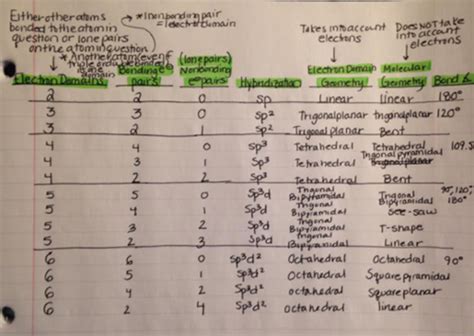 Either other atoms
bonded to the atom in
question or lone pairs
on the atom in question
*Another atom (even if
triple or double bonded)
is one domain
*1 nonbonding pair
= 1 electron domain
Takes into account
electrons
Does NOT take
into account
electrons
Electron Domains Bonding e- pairs (lone pairs) Nonbonding e- pairs Hybridization Electron Domain Geometry Molecular Geometry Bond &
2 2 0 sp Linear linear 180°
3 3 0 sp² Trigonal planar trigonal planar 120°
3 2 1 sp² Trigonal planar Bent
4 4 0 sp³ Tetrahedral Tetrahedral 109.5
4 3 1 sp³ Tetrahedral Trigonal pyramidal
4 2 2 sp³ Tetrahedral Bent
5 5 0 sp³d Trigonal Bipyramidal Trigonal Bipyramidal 90°, 120°, 180°
5 4 1 sp³d Trigonal Bipyramidal see-saw
5 3 2 sp³d Trigonal Bipyramidal T-shape
5 2 3 sp³d Trigonal Bipyramidal Linear
6 6 0 sp³d² octahedral octahedral 90°
6 5 1 sp³d² octahedral Square pyramidal
6 4 2 sp³d² octahedral Square planar
6 2 4 sp³d² Octahedral linear